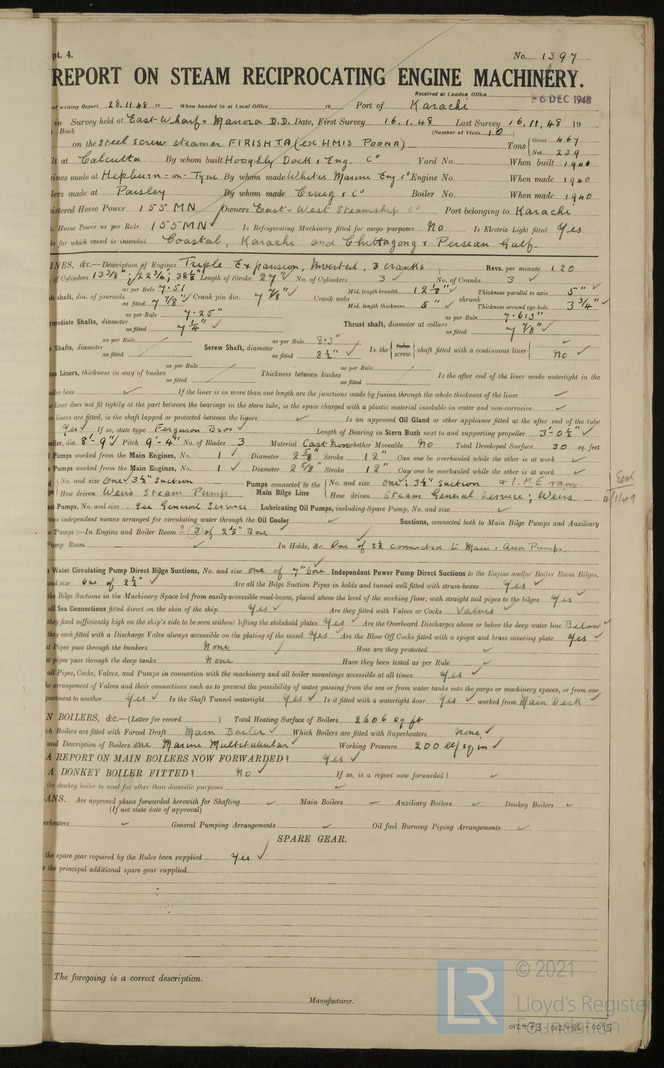 pt. 4.
No. 1397
REPORT ON STEAM RECIPROCATING ENGINE MACHINERY.
Received at London Office
-6 DEC 1948
writing Report 28.11.48 19 When handed in at Local Office 19 Port of Karachi
in Survey held at East Wharf & Manora D.D. Date, First Survey 16.1.48 Last Survey 16.11.48 19
Book (Number of Visits 10)
on the Steel screw steamer FIRISHTA (ex HMIS POONA) Tons Gross 467 Net 239
at Calcutta By whom built Hooghly Dock & Eng. Co Yard No. When built
made at Hepburn-on-Tyne By whom made Whites Marine Eng Co Engine No. When made 1940
made at Paisley By whom made Craig & Co Boiler No. When made 1940
istered Horse Power 155 MN Owners East-West Steamship Co Port belonging to Karachi
Horse Power as per Rule 155 MN Is Refrigerating Machinery fitted for cargo purposes No Is Electric Light fitted Yes
for which vessel is intended Coastal, Karachi and Chittagong & Persian Gulf.
INES, &c.—Description of Engines Triple Expansion, Inverted, 3 cranks Revs. per minute 120
of Cylinders Length of Stroke 27" No. of Cylinders 3 No. of Cranks 3
shaft, dia. of journals as per Rule 7.51 as fitted 7 7/8" Crank pin dia. 7 7/8" Crank webs Mid. length breadth Mid. length thickness 5" shrunk Thickness parallel to axis 5" Thickness around eye-hole 3 3/4"
rmediate Shafts, diameter as per Rule 7.25" as fitted 7 1/4" Thrust shaft, diameter at collars as per Rule 7.613" as fitted 7 7/8"
Shafts, diameter as per Rule as fitted Screw Shaft, diameter as per Rule 8.3" as fitted Is the tube screw shaft fitted with a continuous liner No
Liners, thickness in way of bushes as per Rule as fitted Thickness between bushes as per Rule as fitted Is the after end of the liner made watertight in the
ller boss If the liner is in more than one length are the junctions made by fusion through the whole length of the liner
liner does not fit tightly at the part between the bearings in the stern tube, is the space charged with a plastic material insoluble in water and non-corrosive
liners are fitted, is the shaft lapped or protected between the liners Is an approved Oil Gland or other appliance fitted at the after end of the tube
Yes If so, state type Ferguson Bros Length of Bearing in Stern Bush next to and supporting propeller 3'-0 1/2"
eller, dia. 8'-9" Pitch 9'-4" No. of Blades 3 Material Cast Iron whether Moveable No Total Developed Surface 30 sq. feet
Pumps worked from the Main Engines, No. 1 Diameter Stroke 12" Can one be overhauled while the other is at work
Pumps worked from the Main Engines, No. 1 Diameter 2 5/8" Stroke 12" Can one be overhauled while the other is at work
No. and size One, 3 1/2" suction Pumps connected to the Main Bilge Line No. and size one, 3 1/2" suction & 1. M.E. ram
How driven Weirs Steam Pump How driven Steam General Service, Weirs
Pumps, No. and size See General Service Lubricating Oil Pumps, including Spare Pump, No. and size
independent means arranged for circulating water through the Oil Cooler Suctions, connected both to Main Bilge Pumps and Auxiliary
Pumps:—In Engine and Boiler Room
Pump Room In Holds, &c. One of 2 1/2 connected to Main & Aux Pumps.
Water Circulating Pump Direct Bilge Suctions, No. and size one of 7" Bore Independent Power Pump Direct Suctions to the Engine and/or Boiler Room Bilges,
and size One of 2 1/2" Are all the Bilge Suction Pipes in holds and tunnel well fitted with strum-boxes Yes
the Bilge Suctions in the Machinery Space led from easily accessible mud-boxes, placed above the level of the working floor, with straight tail pipes to the bilges Yes
all Sea Connections fitted direct on the skin of the ship Yes Are they fitted with Valves or Cocks Valves
they fixed sufficiently high on the ship's side to be seen without lifting the stokehold plates Yes Are the Overboard Discharges above or below the deep water line Below
they each fitted with a Discharge Valve always accessible on the plating of the vessel Yes Are the Blow Off Cocks fitted with a spigot and brass covering plate Yes
Pipes pass through the bunkers None How are they protected
pipes pass through the deep tanks None Have they been tested as per Rule
all Pipes, Cocks, Valves, and Pumps in connection with the machinery and all boiler mountings accessible at all times Yes
arrangement of Valves and their connections such as to prevent the possibility of water passing from the sea or from water tanks into the cargo or machinery spaces, or from one
partment to another Yes Is the Shaft Tunnel watertight Yes Is it fitted with a watertight door Yes worked from Main Deck
N BOILERS, &c.—(Letter for record ) Total Heating Surface of Boilers 2606 sq ft
ch Boilers are fitted with Forced Draft Main Boiler Which Boilers are fitted with Superheaters None
and Description of Boilers one Marine Multitubular Working Pressure
A REPORT ON MAIN BOILERS NOW FORWARDED? Yes
A DONKEY BOILER FITTED? No If so, is a report now forwarded?
the donkey boiler to be used for other than domestic purposes
ANS. Are approved plans forwarded herewith for Shafting Main Boilers Auxiliary Boilers Donkey Boilers
(If not state date of approval)
erheaters General Pumping Arrangements Oil fuel Burning Piping Arrangements
SPARE GEAR.
the spare gear required by the Rules been supplied Yes
the principal additional spare gear supplied
The foregoing is a correct description.
Manufacturer.
LR © 2021
Lloyd's Register
Foundation